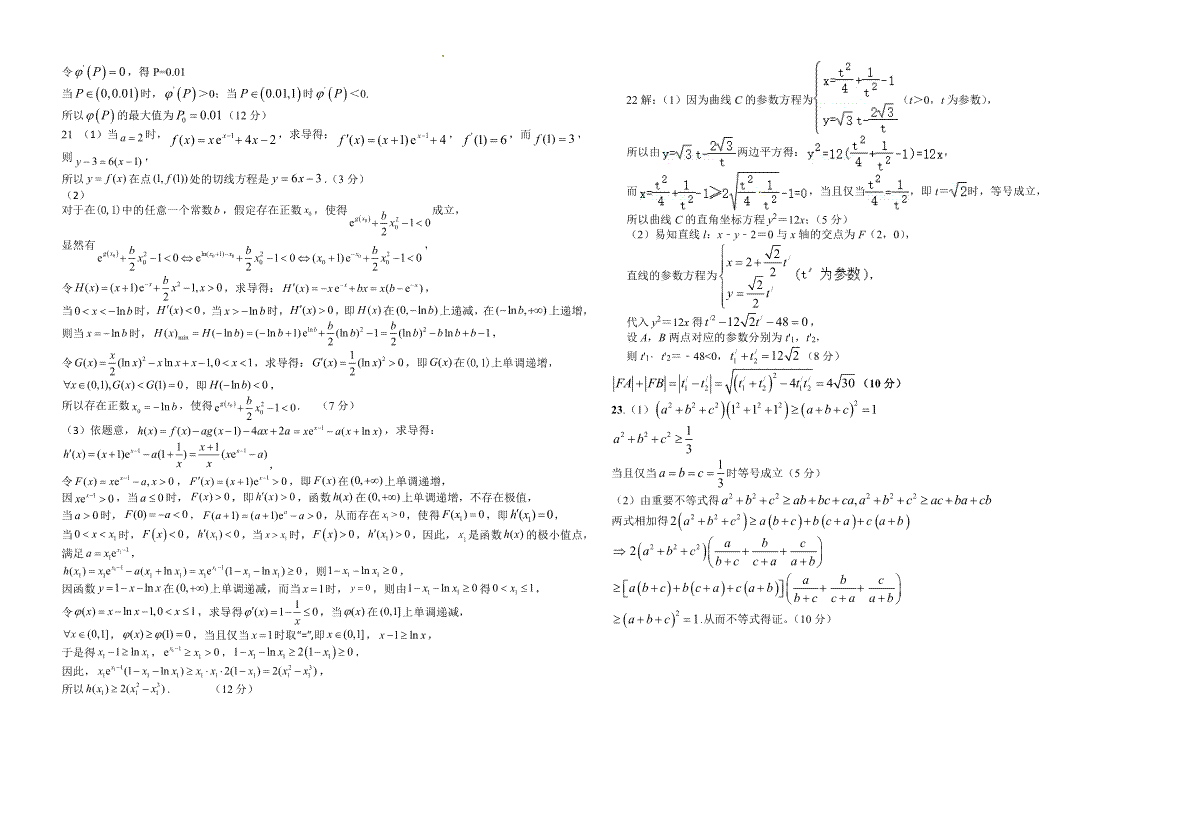 令φ'(P)=0，得 P=0.01
当P∈(0,0.01)时，φ'(P)＞0；当P∈(0.01,1)时φ'(P)＜0.
所以φ(P)的最大值为P₀=0.01(12 分)
21 （1）当a=2时，f(x)=xe^{x-1}+4x-2，求导得：f′(x)=(x+1)e^{x-1}+4，f'(1)=6，而f(1)=3，
则y-3=6(x-1)，
所以y=f(x)在点(1,f(1))处的切线方程是y=6x-3.(3 分)
（2）
对于在(0,1)中的任意一个常数b，假定存在正数x₀，使得e^{g(x₀)}+\frac{b}{2}x₀²-1<0成立，
显然有e^{g(x₀)}+\frac{b}{2}x₀²-1<0⇔e^{ln(x₀+1)-x₀}+\frac{b}{2}x₀²-1<0⇔(x₀+1)e^{-x₀}+\frac{b}{2}x₀²-1<0，
令H(x)=(x+1)e^{-x}+\frac{b}{2}x²-1,x>0，求导得：H′(x)=-xe^{-x}+bx=x(b-e^{-x})，
当0<x<-lnb时，H′(x)<0，当x>-lnb时，H′(x)>0，即H(x)在(0,-lnb)上递减，在(-lnb,+∞)上递增，
则当x=-lnb时，H(x)_{min}=H(-lnb)=(-lnb+1)e^{lnb}+\frac{b}{2}(lnb)²-1=\frac{b}{2}(lnb)²-blnb+b-1，
令G(x)=\frac{x}{2}(lnx)²-xlnx+x-1,0<x<1，求导得：G′(x)=\frac{1}{2}(lnx)²>0，即G(x)在(0,1)上单调递增，
∀x∈(0,1),G(x)<G(1)=0，即H(-lnb)<0，
所以存在正数x₀=-lnb，使得e^{g(x₀)}+\frac{b}{2}x₀²-1<0. （7 分）
（3）依题意，h(x)=f(x)-ag(x-1)-4ax+2a=xe^{x-1}-a(x+lnx)，求导得：
h′(x)=(x+1)e^{x-1}-a(1+\frac{1}{x})=\frac{x+1}{x}(xe^{x-1}-a)，
令F(x)=xe^{x-1}-a,x>0，F′(x)=(x+1)e^{x-1}>0，即F(x)在(0,+∞)上单调递增，
因xe^{x-1}>0，当a≤0时，F(x)>0，即h′(x)>0，函数h(x)在(0,+∞)上单调递增，不存在极值，
当a>0时，F(0)=-a<0，F(a+1)=(a+1)e^a-a>0，从而存在x₁>0，使得F(x₁)=0，即h′(x₁)=0，
当0<x<x₁时，F(x)<0，h′(x₁)<0，当x>x₁时，F(x)>0，h′(x₁)>0，因此，x₁是函数h(x)的极小值点，
满足a=x₁e^{x₁-1}，
h(x₁)=x₁e^{x₁-1}-a(x₁+lnx₁)=x₁e^{x₁-1}(1-x₁-lnx₁)≥0，则1-x₁-lnx₁≥0，
因函数y=1-x-lnx在(0,+∞)上单调递减，而当x=1时，y=0，则由1-x₁-lnx₁≥0得0<x₁≤1，
令φ(x)=x-lnx-1,0<x≤1，求导得φ′(x)=1-\frac{1}{x}≤0，当φ(x)在(0,1]上单调递减，
∀x∈(0,1]，φ(x)≥φ(1)=0，当且仅当x=1时取“=”,即x∈(0,1]，x-1≥lnx，
于是得x₁-1≥lnx₁，e^{x₁-1}≥x₁>0，1-x₁-lnx₁≥2(1-x₁)≥0，
因此，x₁e^{x₁-1}(1-x₁-lnx₁)≥x₁·x₁·2(1-x₁)=2(x₁²-x₁³)，
所以h(x₁)≥2(x₁²-x₁³). （12 分）
22 解：（1）因为曲线 C 的参数方程为{x=\frac{t²}{4}+\frac{1}{t²}-1 y=√3t-\frac{2√3}{t}（t＞0，t 为参数），
所以由y=√3t-\frac{2√3}{t}两边平方得：y²=12(\frac{t²}{4}+\frac{1}{t²}-1)=12x，
而x=\frac{t²}{4}+\frac{1}{t²}-1≥2\sqrt{\frac{t²}{4}·\frac{1}{t²}}-1=0，当且仅当\frac{t²}{4}=\frac{1}{t²}，即 t=√2时，等号成立，
所以曲线 C 的直角坐标方程 y²＝12x；（5 分）
（2）易知直线 l：x﹣y﹣2＝0 与 x 轴的交点为 F（2，0），
直线的参数方程为{x=2+\frac{√2}{2}t′ y=\frac{√2}{2}t′ (t′ 为参数)，
代入 y²＝12x 得t′²-12√2t′-48=0，
设 A，B 两点对应的参数分别为 t'₁，t'₂，
则 t'₁·t'₂＝﹣48<0，t₁′+t₂′=12√2（8 分）
|FA|+|FB|=|t₁′-t₂′|=\sqrt{(t₁′+t₂′)²-4t₁′t₂′}=4√30 (10 分)
23.（1）(a²+b²+c²)(1²+1²+1²)≥(a+b+c)²=1
a²+b²+c²≥\frac{1}{3}
当且仅当a=b=c=\frac{1}{3}时等号成立(5 分)
（2）由重要不等式得a²+b²+c²≥ab+bc+ca,a²+b²+c²≥ac+ba+cb
两式相加得2(a²+b²+c²)≥a(b+c)+b(c+a)+c(a+b)
⇒2(a²+b²+c²)(\frac{a}{b+c}+\frac{b}{c+a}+\frac{c}{a+b})
≥[a(b+c)+b(c+a)+c(a+b)](\frac{a}{b+c}+\frac{b}{c+a}+\frac{c}{a+b})
≥(a+b+c)²=1.从而不等式得证。(10 分)